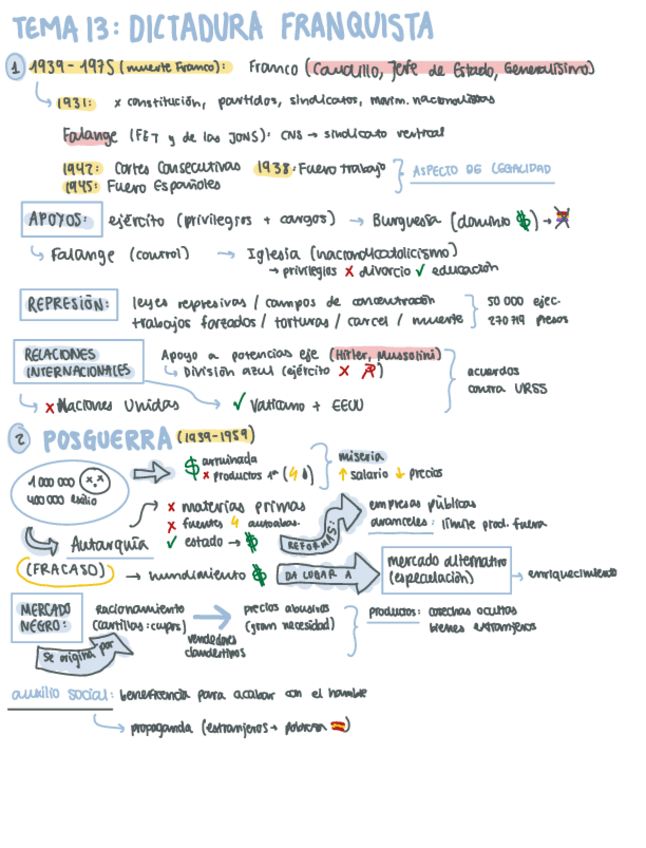 TEMA 13: DICTADURA FRANQUISTA
1 1939-1975 (muerte Franco): Franco (Caudillo, Jefe de Estado, Generalísimo)
1931: x constitución, partidos, sindicatos, movim. nacionalistas
Falange (FET y de las JONS): CNS → sindicato vertical
1942: Cortes Consecutivas 1938: Fuero trabajo
1945: Fuero Españoles
ASPECTO DE LEGALIDAD
APOYOS: ejército (privilegios + cargos) → Burguesía (dominio $) →
Falange (control) → Iglesia (nacionalcatolicismo)
→ privilegios x divorcio ✓ educación
REPRESIÓN: leyes represivas / campos de concentración
trabajos forzados / torturas / carcel / muerte
50 000 ejec.
270 719 presos
RELACIONES INTERNACIONALES
Apoyo a potencias eje (Hitler, Mussolini)
División azul (ejército x ☭)
acuerdos contra URSS
x Naciones Unidas ✓ Vaticano + EEUU
2 POSGUERRA (1939-1959)
1 000 000
400 000 exilio
$ arruinada
x productos 1ª
miseria
↑ salario ↓ precios
Autarquía
x materias primas
x fuentes
✓ estado → $
REFORMAS:
empresas públicas
aranceles: límite prod. fuera
(FRACASO) → hundimiento $ DA LUGAR A
mercado alternativo (especulación) → enriquecimiento
MERCADO NEGRO:
racionamiento (cartillas: cupos)
vendedores clandestinos
precios abusivos (gran necesidad)
productos: cosechas ocultas
bienes extranjeros
se origina por
auxilio social: beneficencia para acabar con el hambre
propaganda (extranjeros →